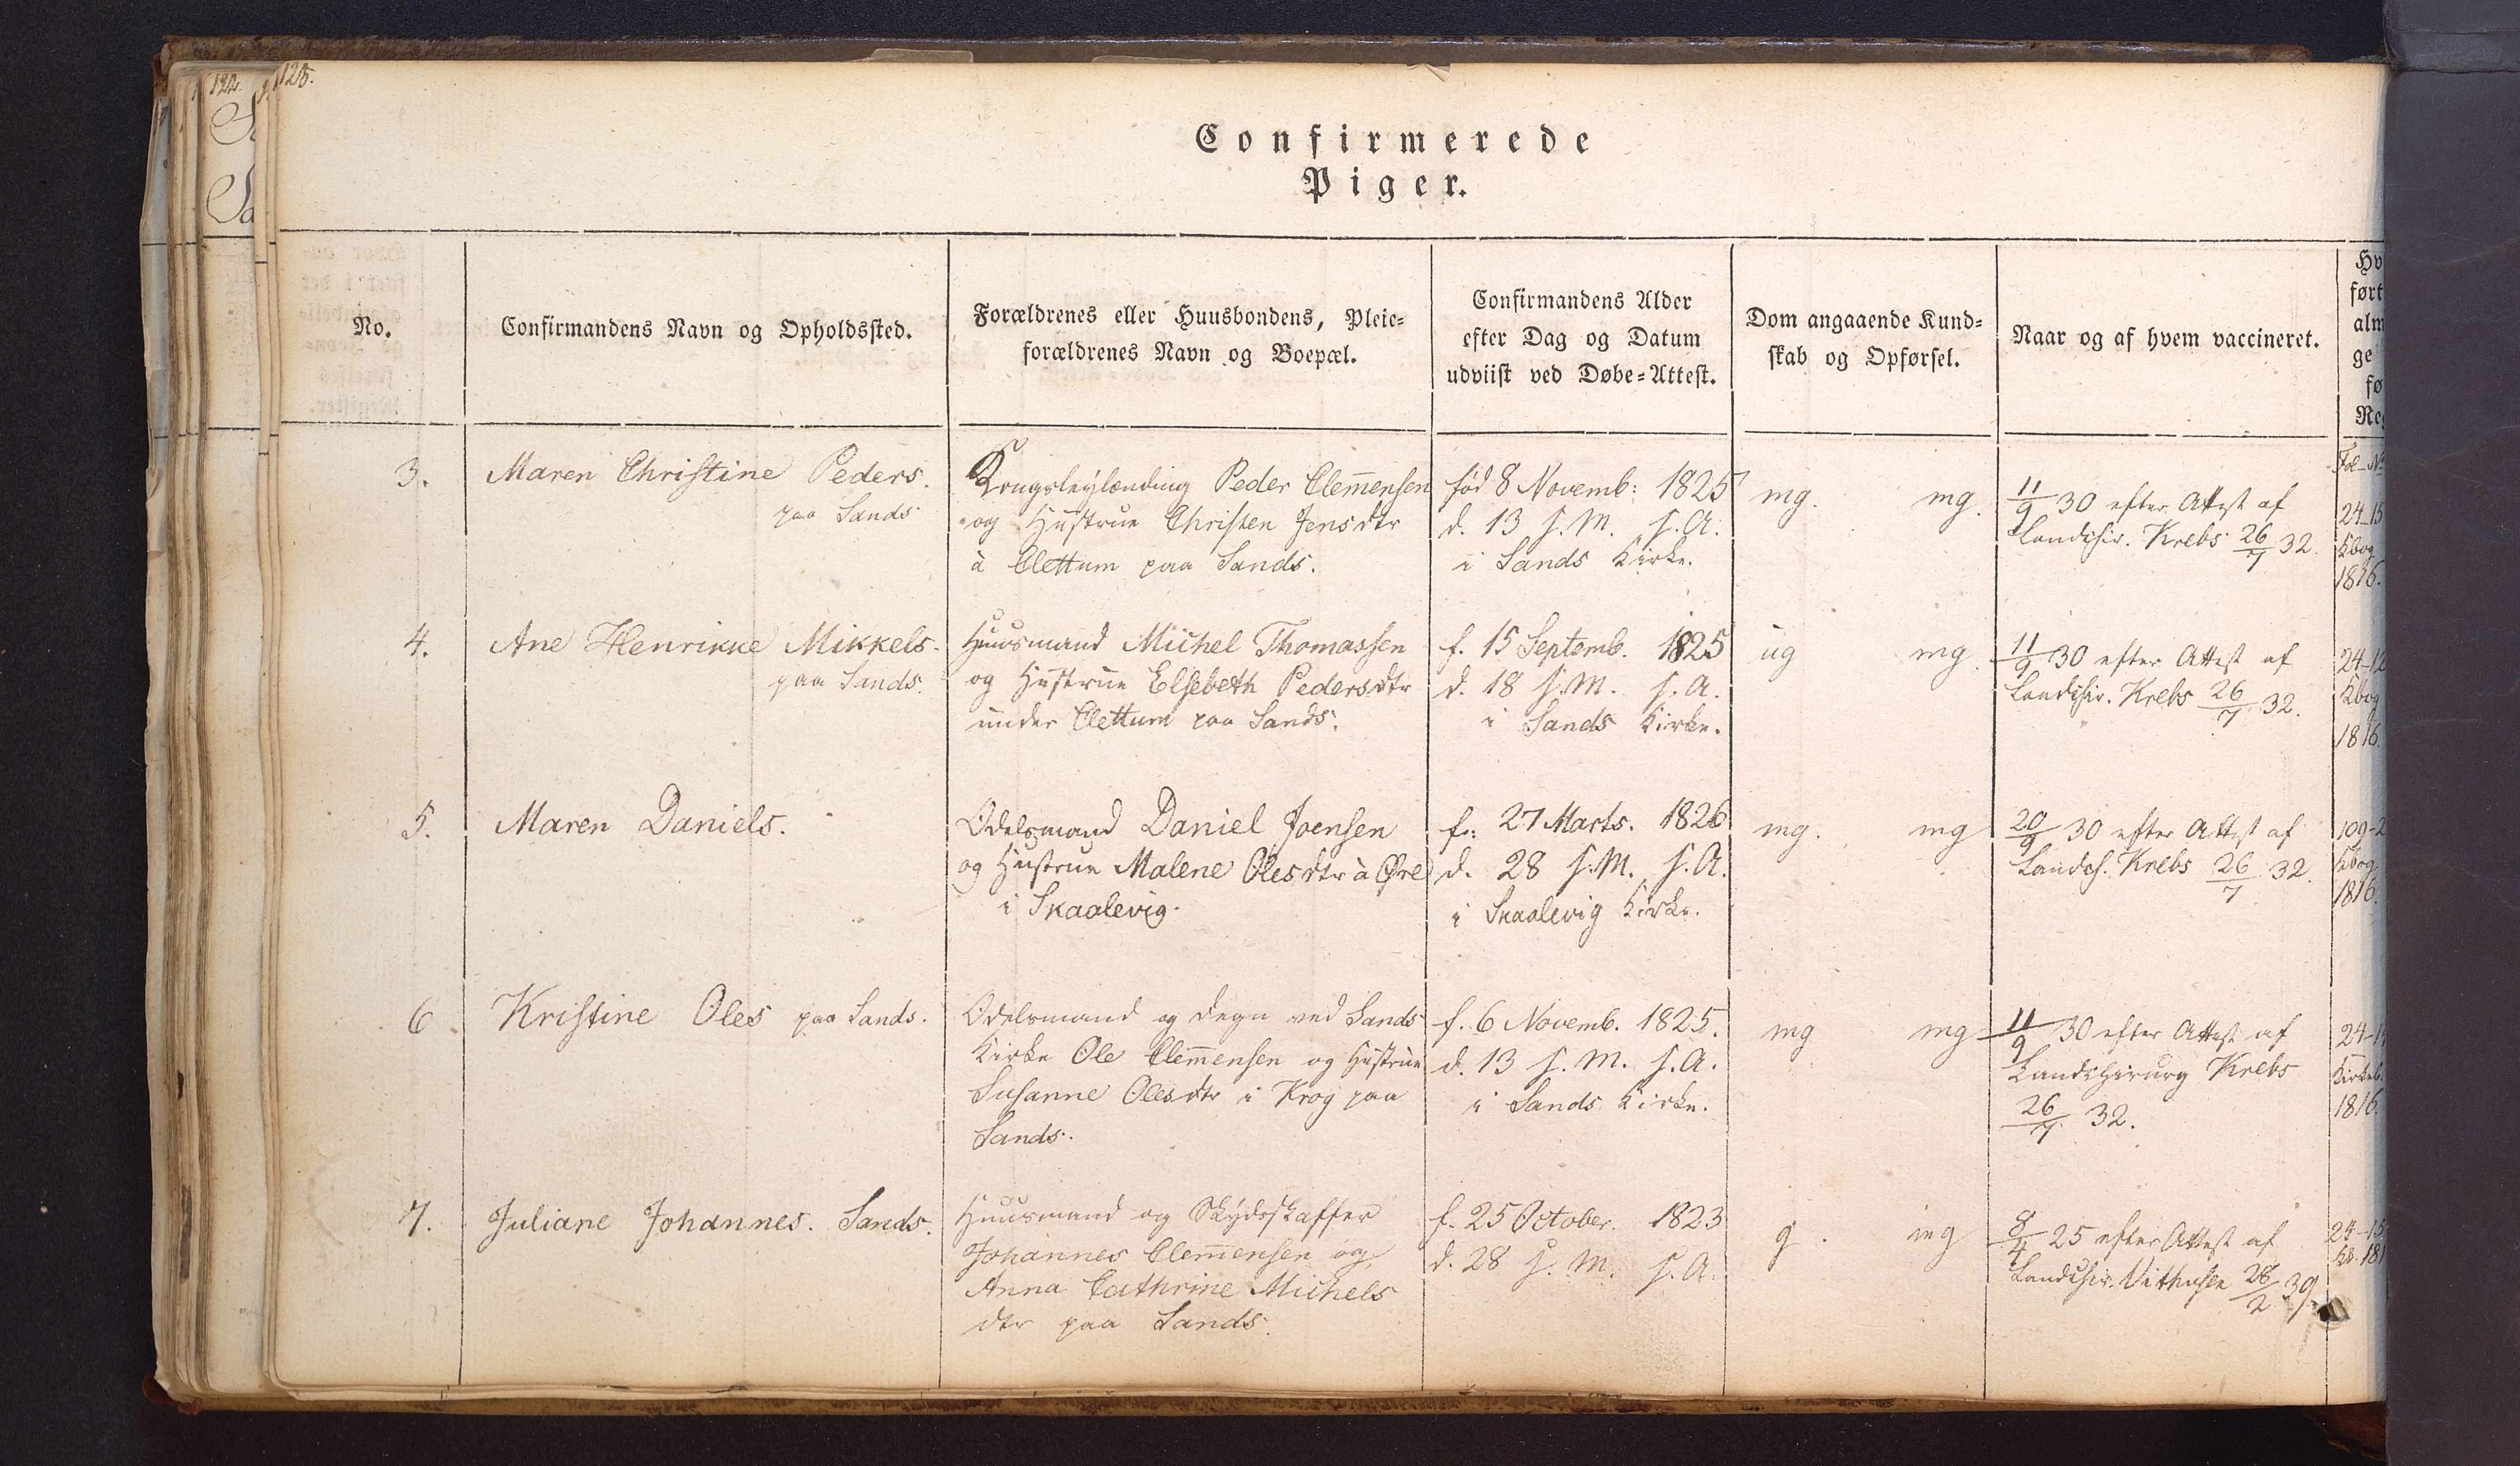 124
125.
Confirmerede
Piger.
No.
Confirmandens Navn og Opholdssted.
Forældrenes eller Huusbondens, Pleie-
forældrenes Navn og Boepæl.
Confirmandens Alder
efter Dag og Datum
udviist ved Døbe-Attest.
Dom angaaende Kund-
skab og Opførsel.
Naar og af hvem vaccineret.
Hv
ført
alm
ge
fø
Reg
Fol-No
3.
Maren Christine Peders.
paa Sands
Kongsleylænding Peder Clem̄ensen
og Hustrue Christen Jensdtr
à Clettum paa Sands.
fød 8 Novemb: 1825
d. 13 s. M. s. A.
i Sands Kirke.
mg. mg.
11/9 30 efter Attest af
Landchir. Krebs 26/7 32.
24-15
Kbog
1816.
4.
Ane Henrikke Mikkels-
paa Sands.
Huusmand Michel Thomassen
og Hustrue Elsebeth Pedersdtr
under Clettum paa Sands.
f. 15 Septemb. 1825
d. 18 s. M. s. A.
i Sands Kirke.
ug mg
11/9 30 efter Attest af
Landchir. Krebs 26/7 32.
24-12
Kbog
1816.
5.
Maren Daniels.
Odelsmand Daniel Joensen
og Hustrue Malene Olesdtr à Øre
i Skaalevig.
f: 27 Marts. 1826
d. 28 s. M. s. A.
i Skaalevig Kirke.
mg. mg
20/9 30 efter Attest af
Landch. Krebs 26/7 32.
109-2
Kbog
1816.
6
Kristine Oles paa Sands.
Odelsmand og Degn ved Sands
Kirke Ole Clem̄ensen og Hustrue
Susanne Olesdtr i Krog paa
Sands.
f. 6 Novemb. 1825.
d. 13 s. M. s. A.
i Sands Kirke.
mg mg
11/9 30 efter Attest af
Landchirurg Krebs
26/7 32.
24-1
Kirkeb.
1816.
7.
Juliane Johannes. Sands.
Huusmand og Skydsskaffer
Johannes Clem̄ensen og
Anna Cathrine Michels
dtr paa Sands.
f. 25 October. 1823
d. 28 s. M. s. A.
g. mg
8/4 25 efter Attest af
Landchir. 28/2 39
24-15
Kb. 181